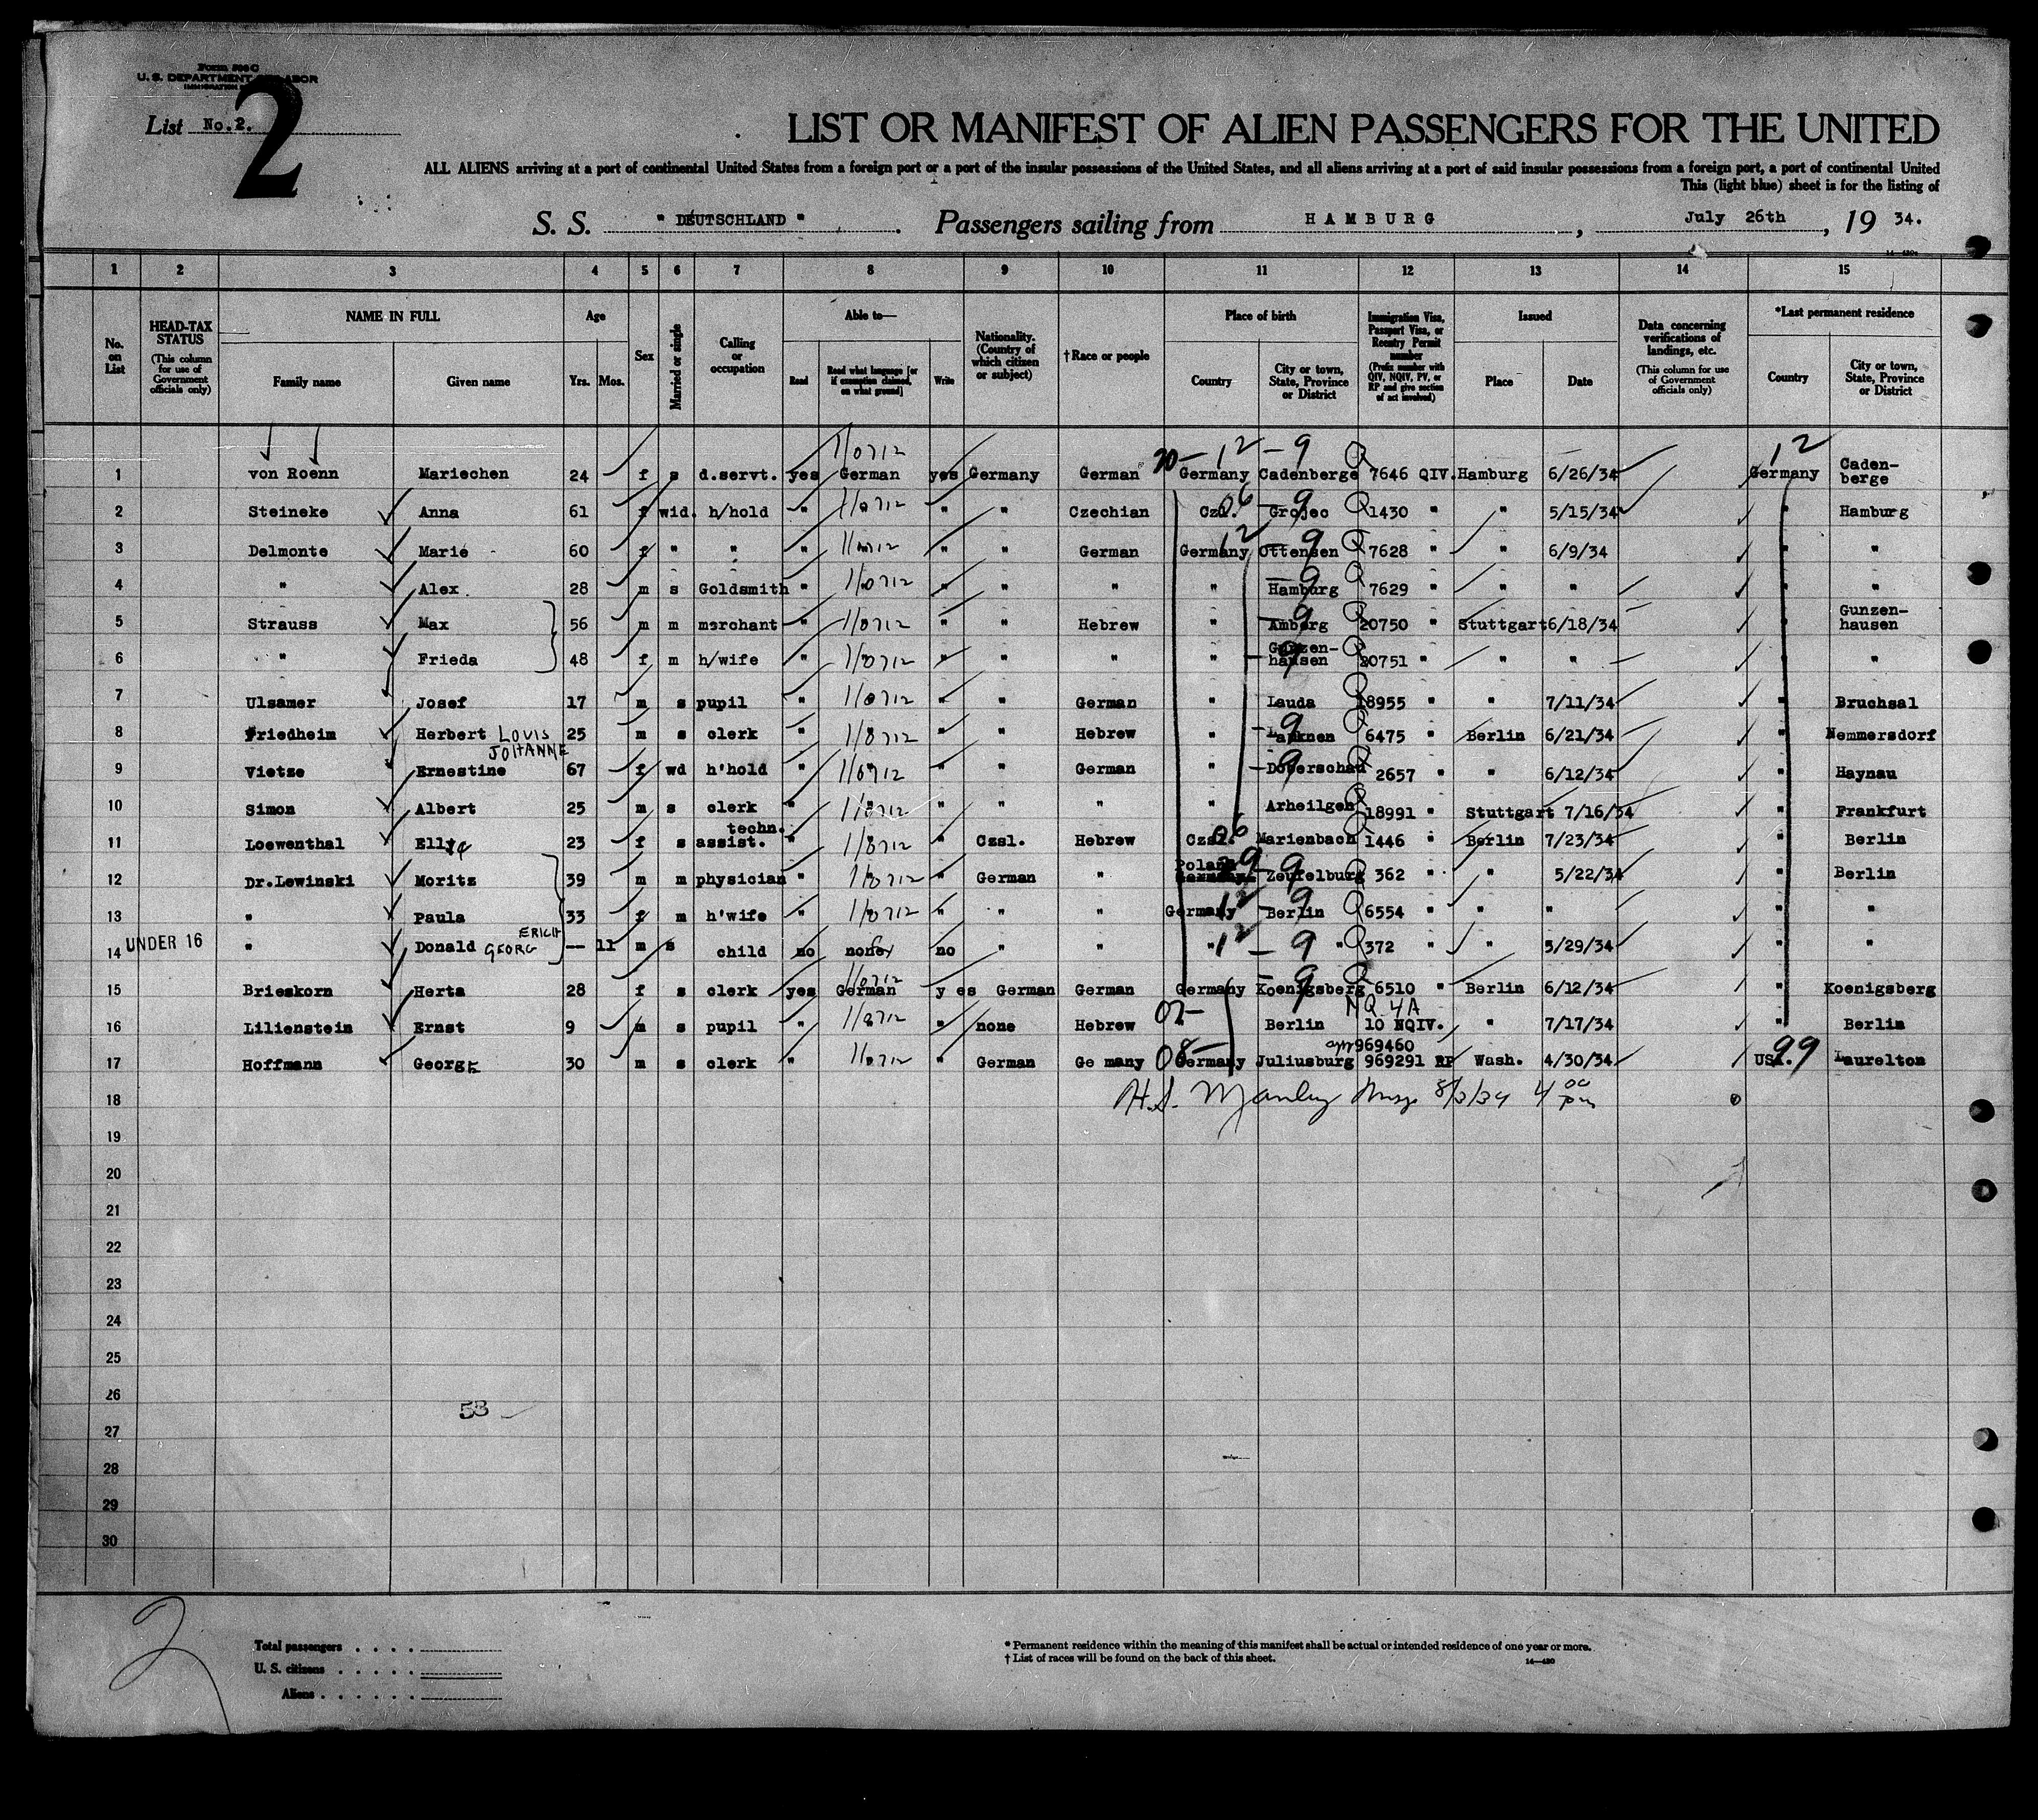 Form 500 C
U. S. DEPARTMENT OF LABOR
List No.2.
2
LIST OR MANIFEST OF ALIEN PASSENGERS FOR THE UNITED
ALL ALIENS arriving at a port of continental United States from a foreign port or a port of the insular possessions of the United States, and all aliens arriving at a port of said insular possessions from a foreign port, a port of continental United
This (light blue) sheet is for the listing of
S. S. " DEUTSCHLAND " Passengers sailing from HAMBURG, July 26th, 19 34.
1 2 3 4 5 6 7 8 9 10 11 12 13 14 15
No. on List
HEAD-TAX STATUS (This column for use of Government officials only)
NAME IN FULL Family name Given name
Age Yrs. Mos.
Sex
Married or single
Calling or occupation
Able to— Read Read what language [or if exemption claimed, on what ground] Write
Nationality. (Country of which citizen or subject)
†Race or people
Place of birth Country City or town, State, Province or District
Immigration Visa, Passport Visa, or Reentry Permit number (Prefix number with QIV, NQIV, PV, or RP and give section of act involved)
Issued Place Date
Data concerning verifications of landings, etc. (This column for use of Government officials only)
*Last permanent residence Country City or town, State, Province or District
1 von Roenn Mariechen 24 f s d.servt. yes German yes Germany German 20- 12 - 9 Germany Cadenberge 7646 QIV. Hamburg 6/26/34 12 Germany Caden-berge
2 Steineke Anna 61 f wid. h/hold " " " " Czechian Czl. 06 9 Grojec 1430 " " 5/15/34 " Hamburg
3 Delmonte Marie 60 f " " " " " " German Germany 12 9 Ottensen 7628 " " 6/9/34 " "
4 " Alex 28 m s Goldsmith " " " " " " 9 Hamburg 7629 " " " " "
5 Strauss Max 56 m m merchant " " " " Hebrew " 9 Amberg 20750 " Stuttgart 6/18/34 " Gunzen-hausen
6 " Frieda 48 f m h/wife " " " " " " 9 Gunzen-hausen 20751 " " " " "
7 Ulsamer Josef 17 m s pupil " " " " German " Lauda 18955 " " 7/11/34 " Bruchsal
8 Friedheim Herbert LOUIS 25 m s clerk " " " " Hebrew " 9 6475 " Berlin 6/21/34 " Nemmersdorf
9 Vietze Ernestine JOHANNE 67 f wd h'hold " " " " German " 9 Doberschau 2657 " " 6/12/34 " Haynau
10 Simon Albert 25 m s clerk " " " " " " Arheilgen 18991 " Stuttgart 7/16/34 " Frankfurt
11 Loewenthal Elly 23 f s techn. assist. " " " Czsl. Hebrew Czsl. 06 Marienbach 1446 " Berlin 7/23/34 " Berlin
12 Dr.Lewinski Moritz 39 m m physician " " " German " Poland 9 362 " " 5/22/34 " Berlin
13 " Paula 33 f m h'wife " " " " " Germany 12 - 9 Berlin 6554 " " " " "
14 UNDER 16 " Donald GEORG ERICH -- 11 m s child no none no " " " 12 - 9 " 372 " " 5/29/34 " "
15 Brieskorn Herta 28 f s clerk yes German y es German German Germany 9 Koenigsberg 6510 " Berlin 6/12/34 " Koenigsberg
16 Lilienstein Ernst 9 m s pupil " " " none Hebrew Berlin NQ 4A 10 NQIV. " 7/17/34 " Berlin
17 Hoffmann George 30 m s clerk " " " German Ge many 08- Germany Juliusburg 969460 969291 RP Wash. 4/30/34 USA. 99 Laurelton
18 8/3/34 4 00 pm
19
20
21
22
23
24
25
26
53
27
28
29
30
2
Total passengers . . . .
U. S. citizens . . . . .
Aliens . . . . . .
* Permanent residence within the meaning of this manifest shall be actual or intended residence of one year or more.
† List of races will be found on the back of this sheet.
14—430